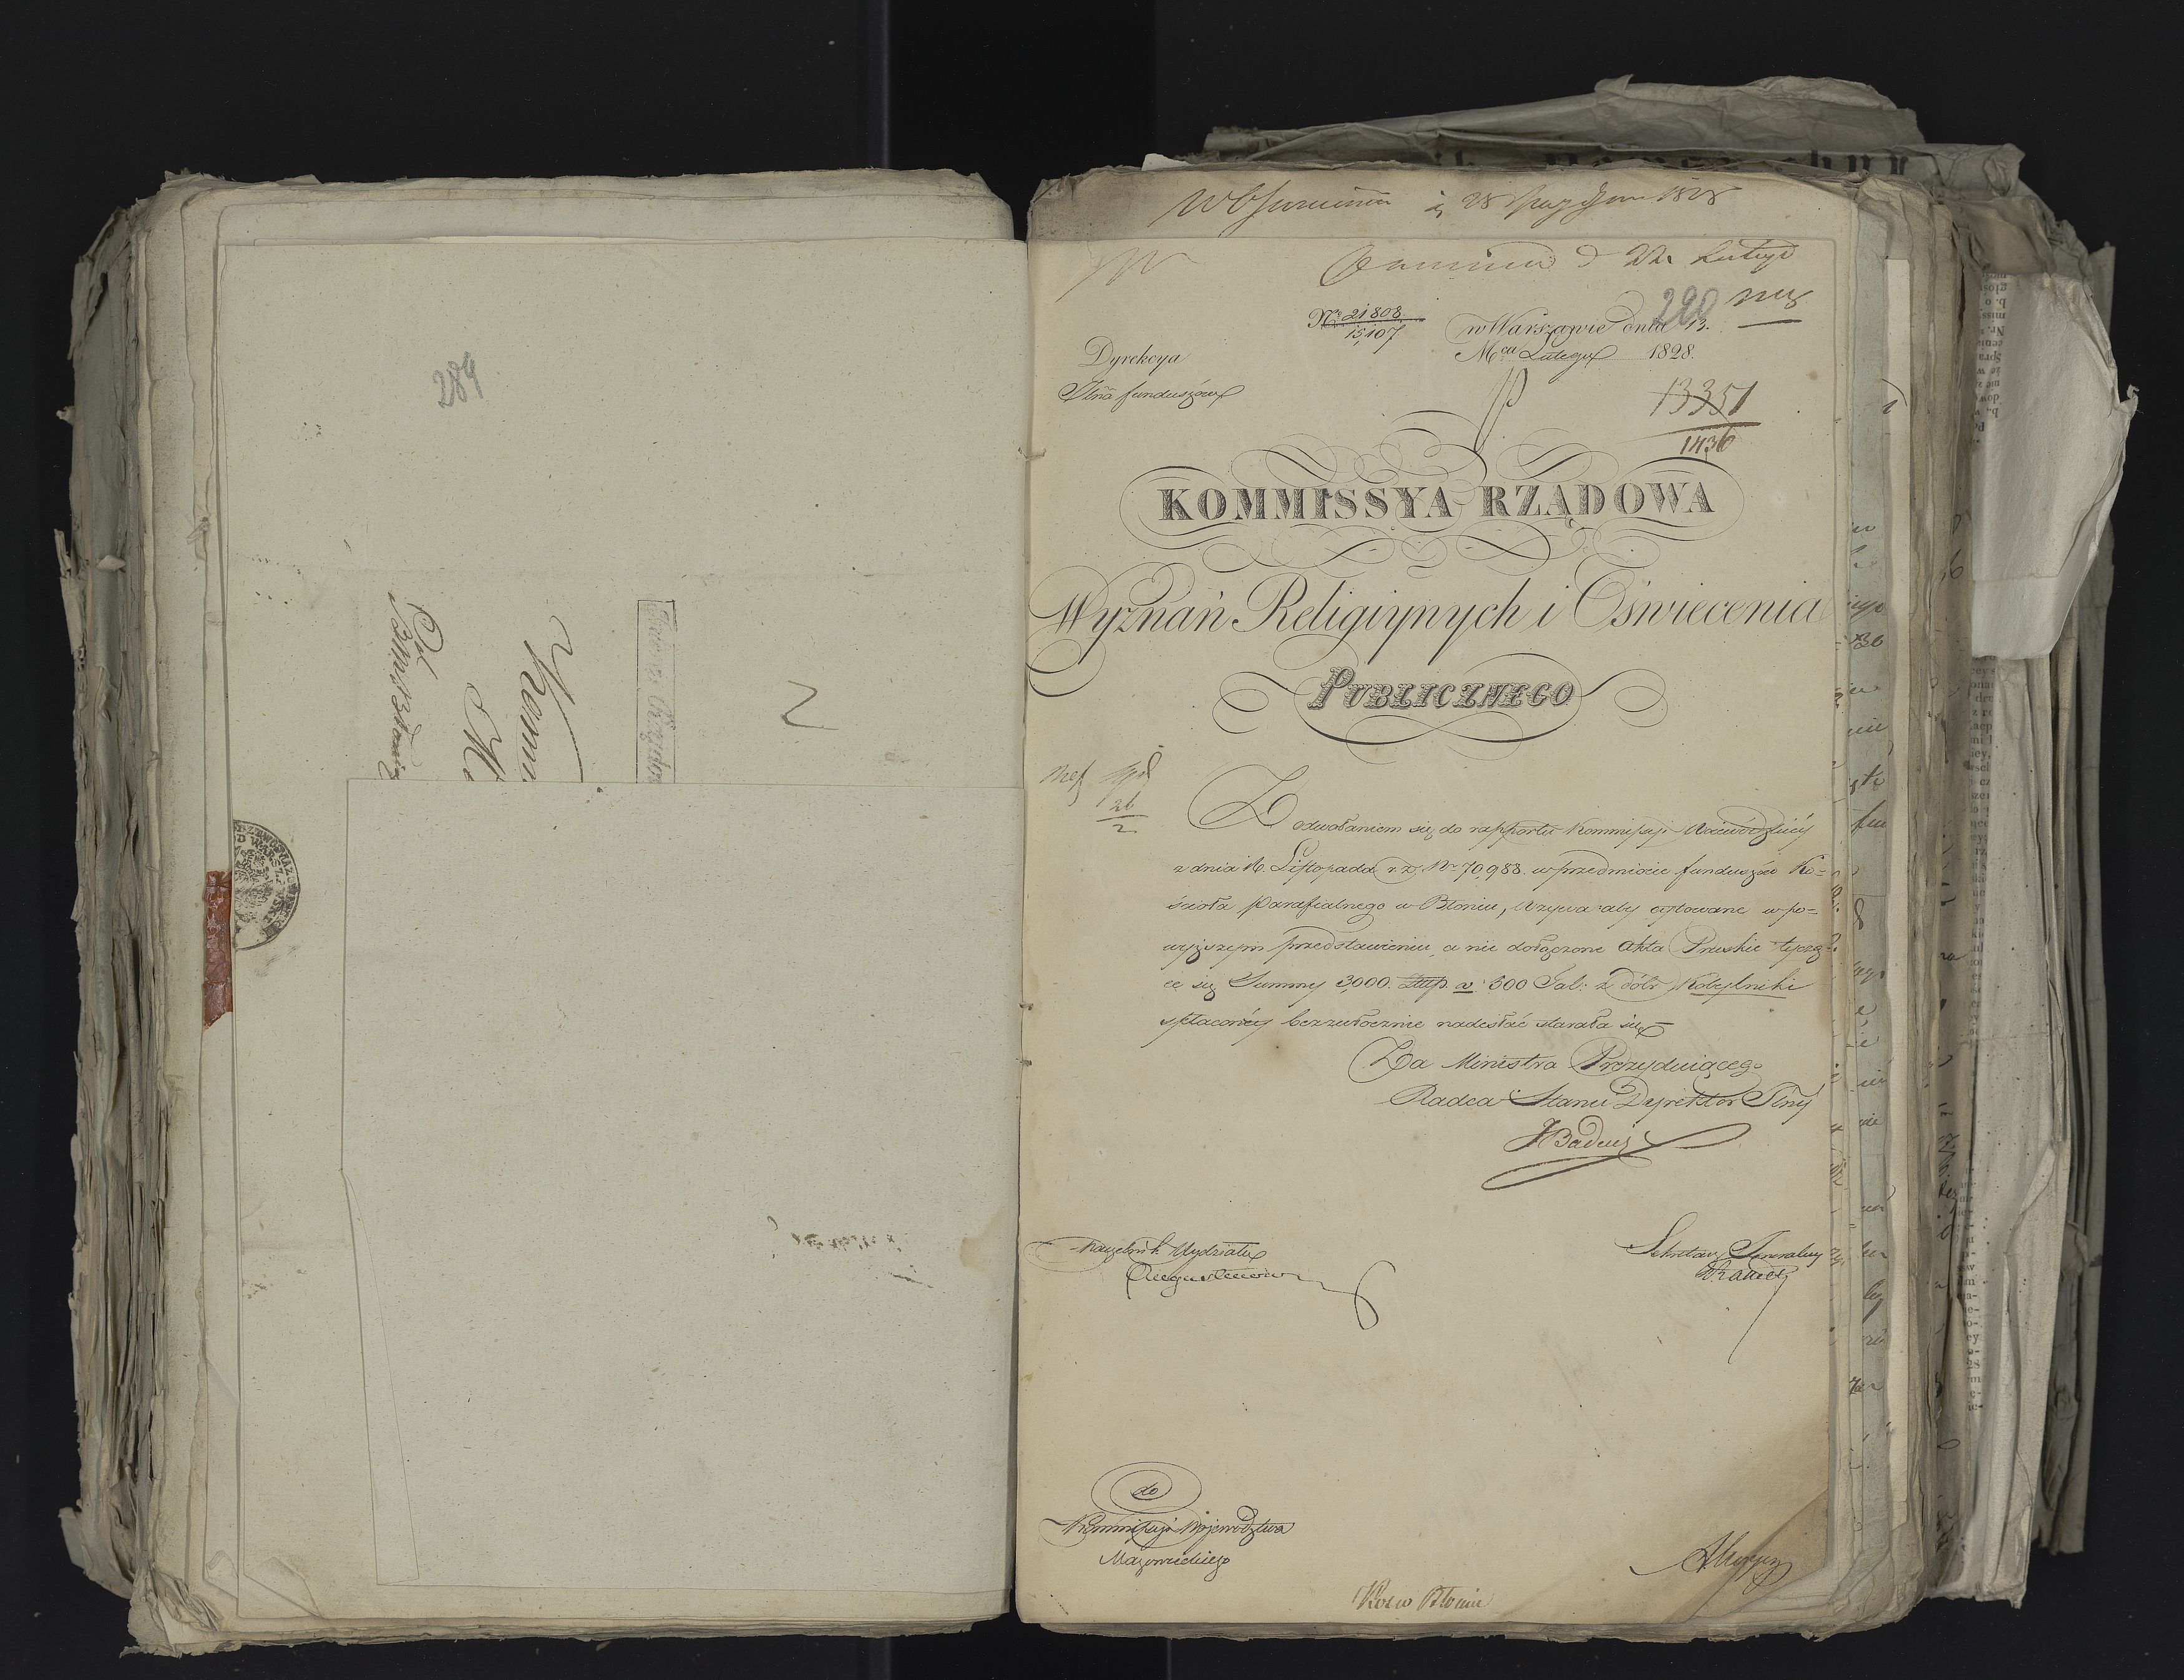 289
2
28 1828
d 22 Lutego
290
No 21808
15,107
w Warszawie dnia 13.
Mca Lutego 1828.
Dyrekcya
Jlna funduszów
13351
1436
KOMMISSYA RZĄDOWA
Wyznań Religiynych i Oświecenia
PUBLICZNEGO
26
2
Z odwołaniem się do rapportu Kommissyi Woiewódzkiéy
z dnia 16. Listopada r. z. Nr 70,988. w przedmiocie funduszów Ko=
ścioła parafialnego w Błoniu, wzywa aby cytowane w po=
wyższem przedstawieniu, a nie dołączone Akta Pruskie tyczą=
ce się Summy 3,000. złłp. a 500 Tal: z dóbr Kobylniki
spłaconéy bezzwłocznie nadesłać starała się
Za Ministra Prezyduiącego
Radca Stanu Dyrektor Jlny
JBadeni
Naczelnik Wydziału
Sekretarz Jeneralny
do
Kommissyi Województwa
Mazowieckiego
Kos w Błoniu